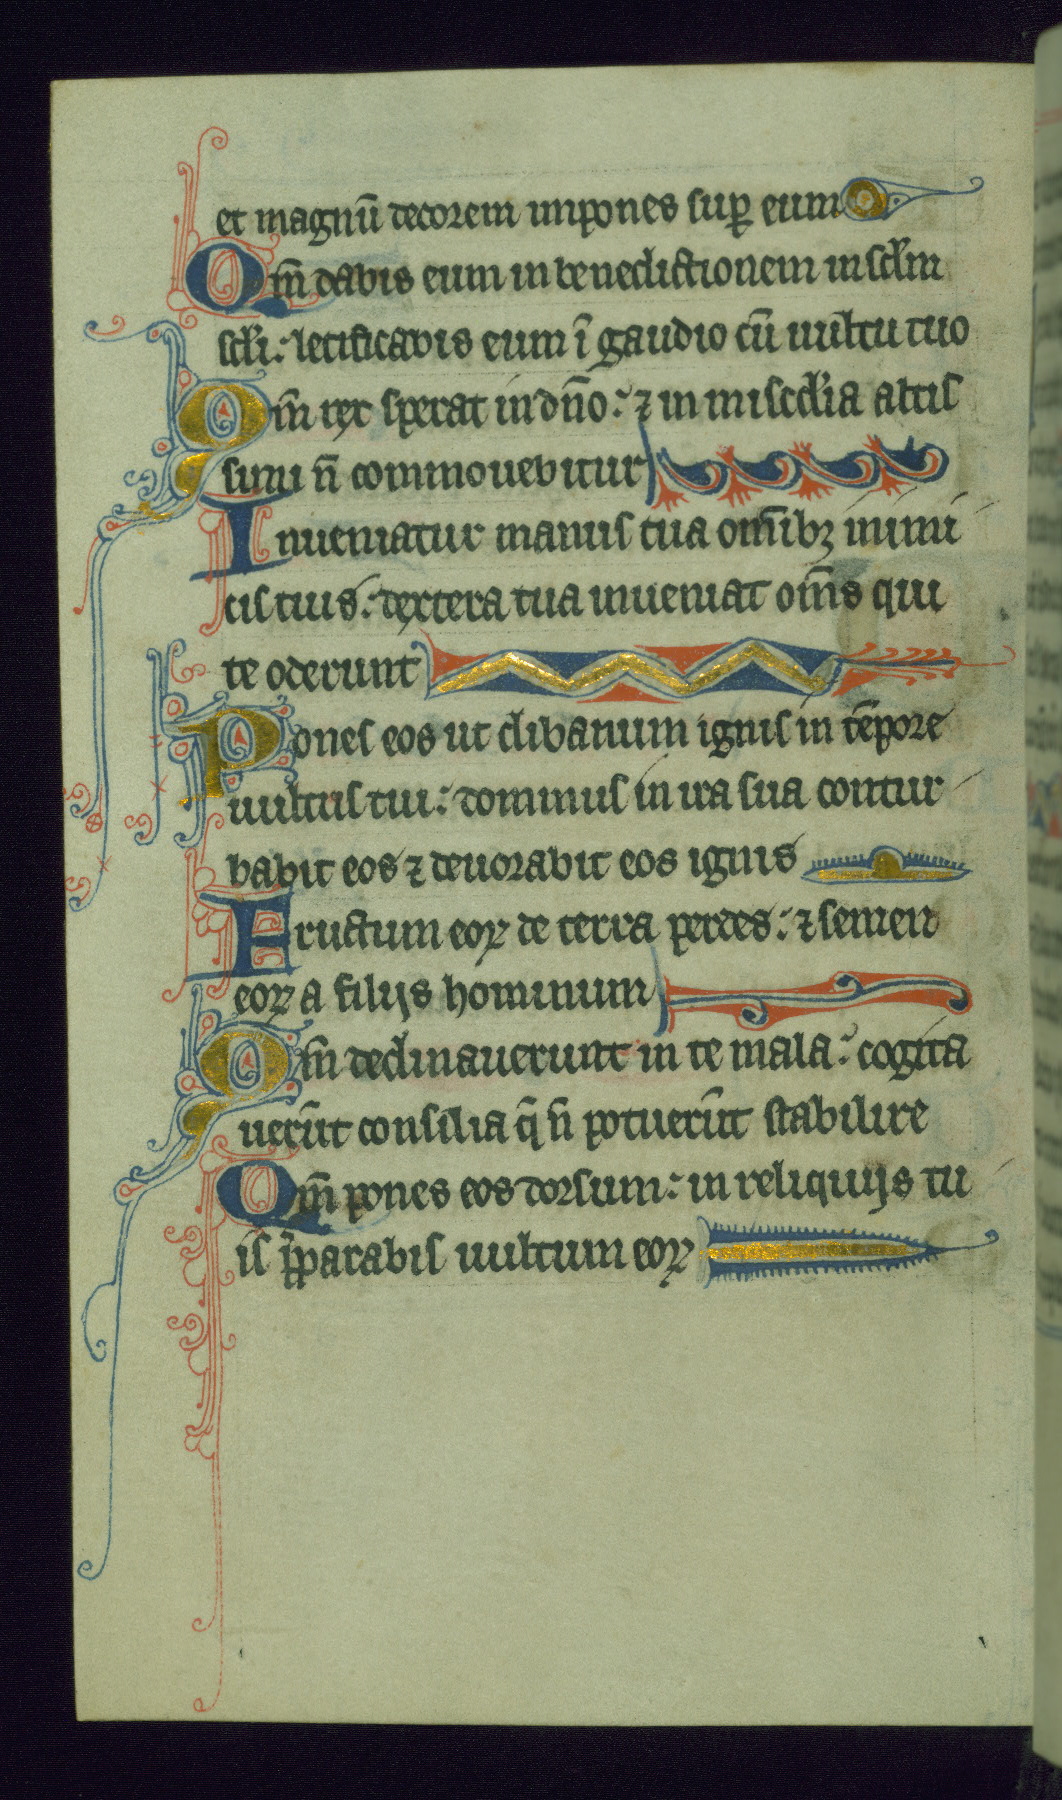 et magnū decorem impones suꝑ eum
Qm̄ dabis eum in benedictionem in scl̄m
scl̄i: letificabis eum ī gaudio cū uultu tuo
Qm̄ rex sperat in dn̄o: ⁊ in misc̄dia altis
simi n̄ commouebitur
Inueniatur manus tua om̄ibꝫ inimi
cis tuis: dextera tua inueniat om̄s qui
te oderunt
Pones eos ut clibanum ignis in tēpore
uultus tui: dominus in ira sua contur
babit eos ⁊ deuorabit eos ignis
Fructum eoꝝ de terra perdes: ⁊ semen
eoꝝ a filijs hominum
Qm̄ declinauerunt in te mala: cogita
uerūt consilia q̄ n̄ potuerūt stabilire
Qm̄ pones eos dorsum: in reliquijs tu
is p̄parabis uultum eoꝝ